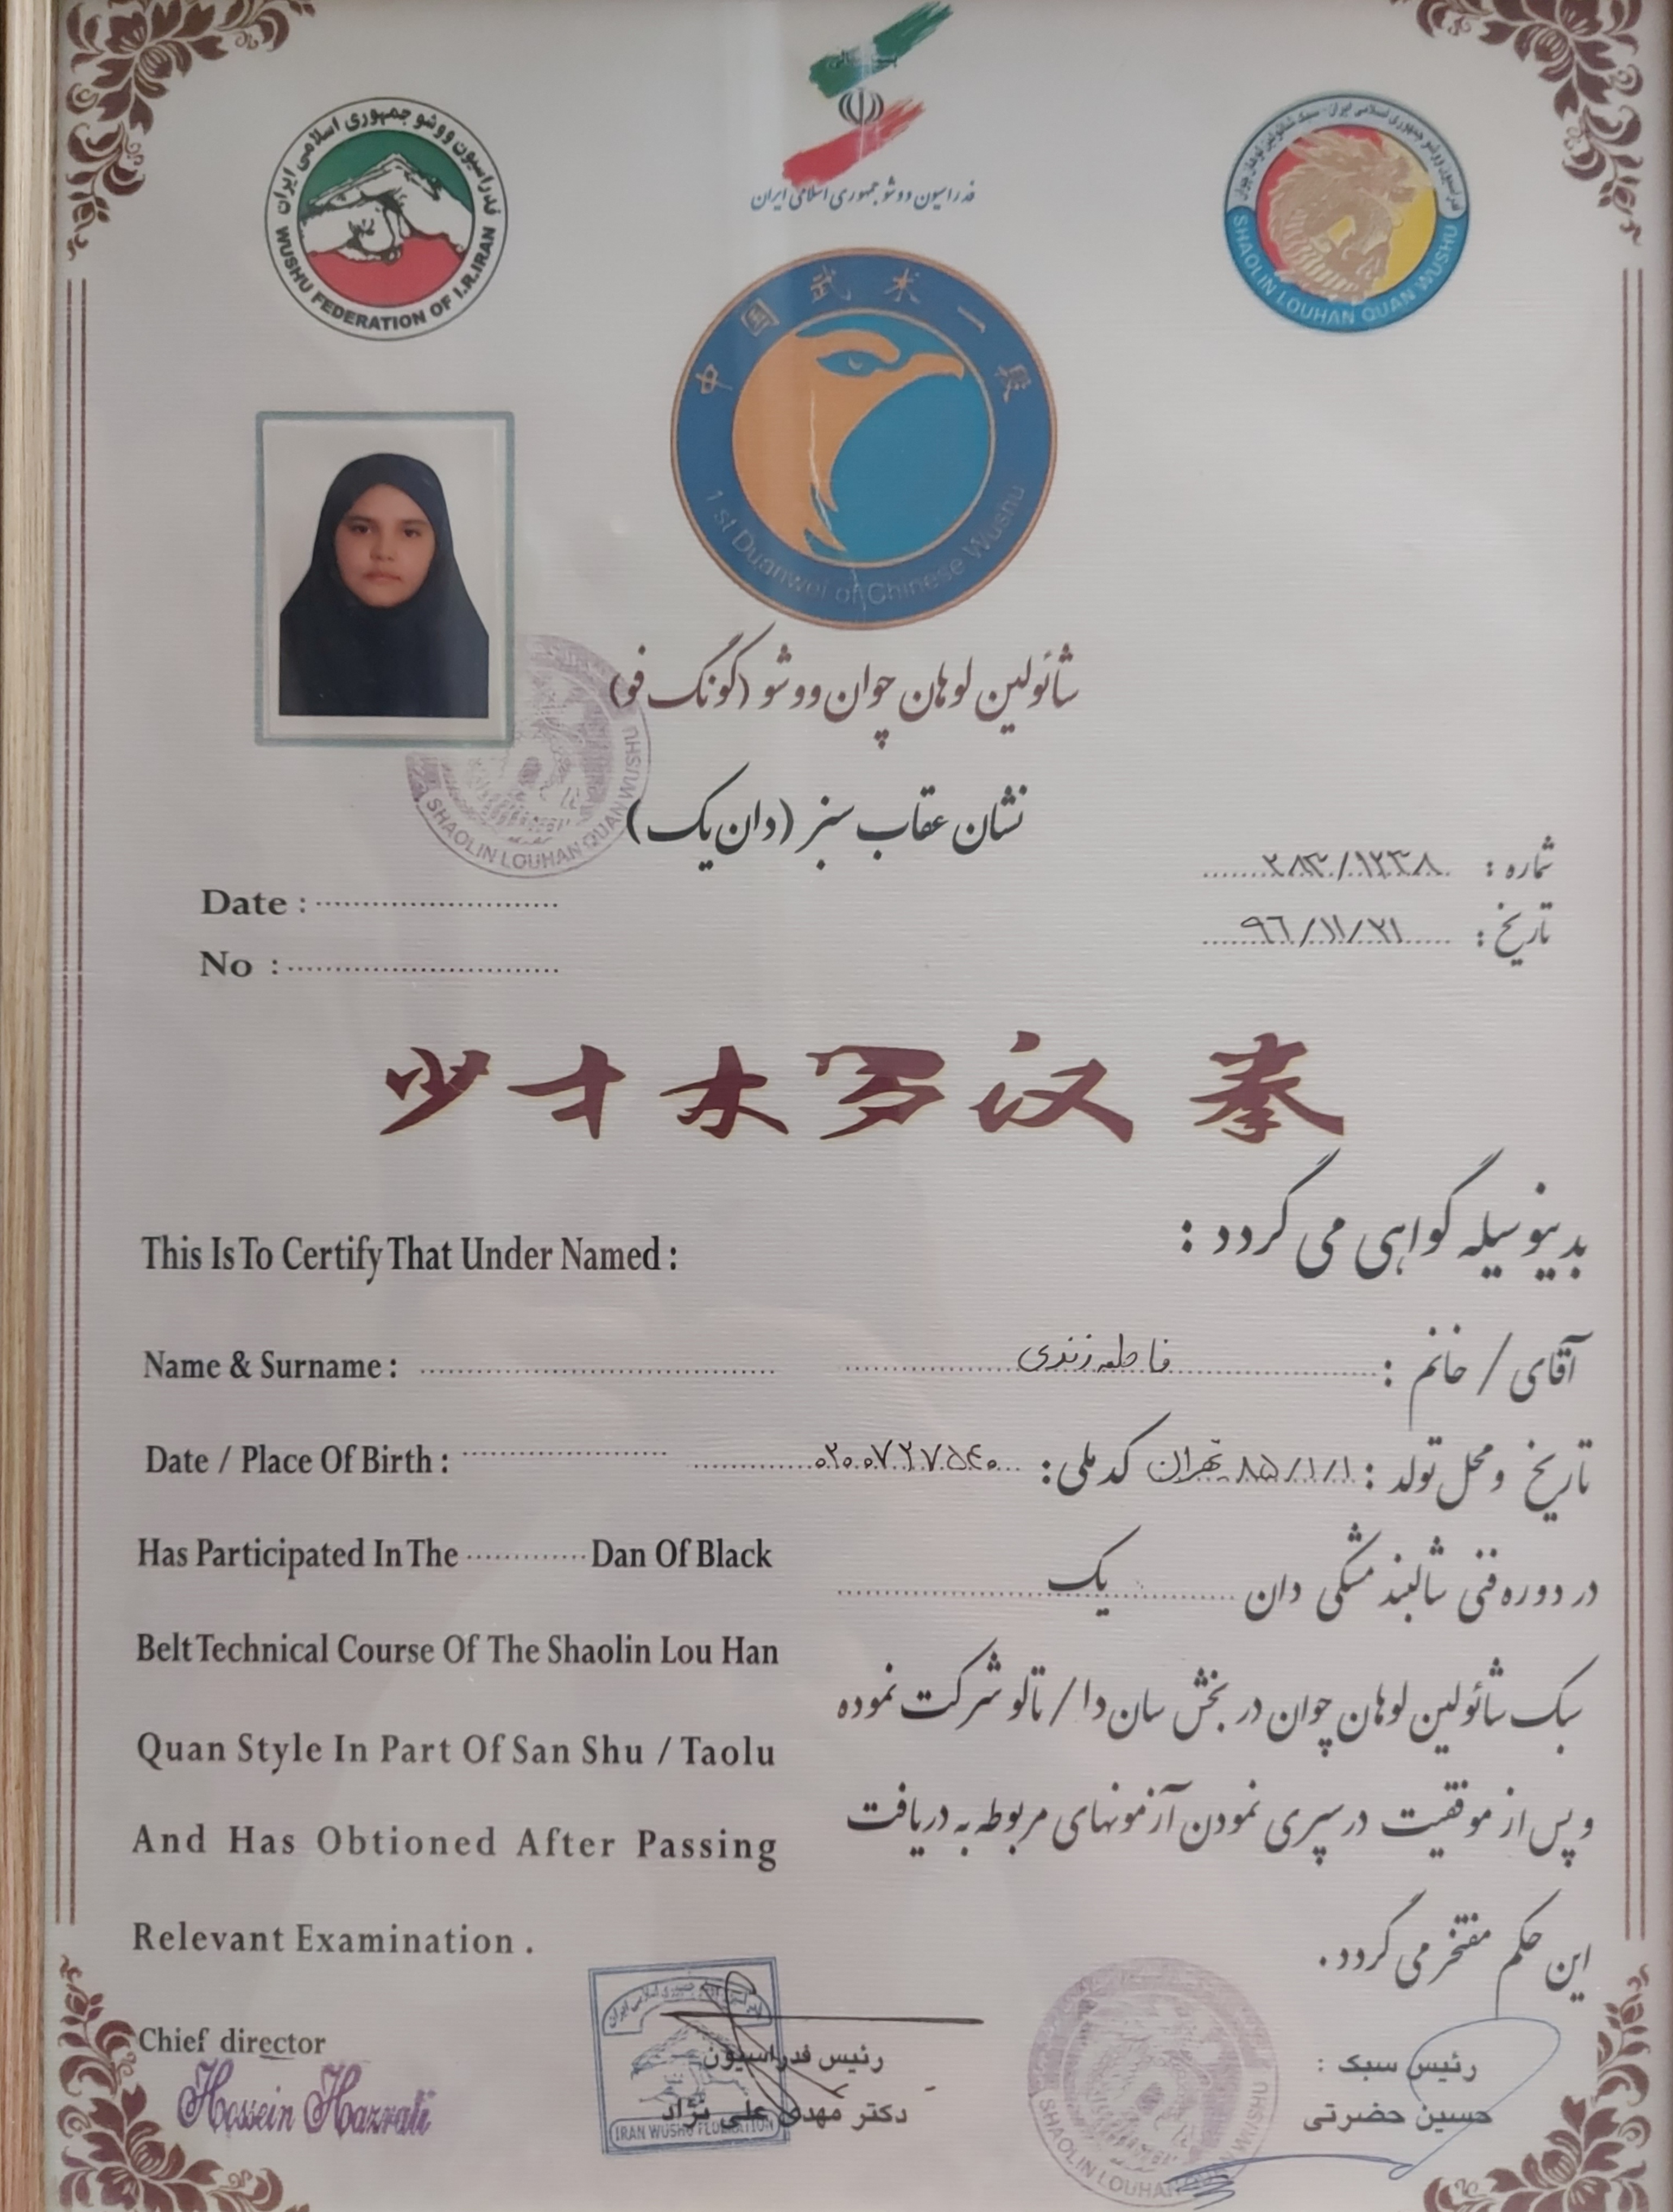 بسمه تعالی
فدراسیون ووشو جمهوری اسلامی ایران
فدراسیون ووشو جمهوری اسلامی ایران
WUSHU FEDERATION OF I.R.IRAN
فدراسیون ووشو جمهوری اسلامی ایران - سبک شائولین لوهان چوان
SHAOLIN LOUHAN QUAN WUSHU
中国武术一段
1 st Duanwei of Chinese Wushu
شائولین لوهان چوان ووشو (کونگ فو)
SHAOLIN LOUHAN QUAN WUSHU
نشان عقاب سبز (دان یک)
شماره : ۲۸۳/۱۲۳۸
Date :
تاریخ : ۹۶/۱۱/۲۱
No :
少 才 木 罗 汉 拳
بدینوسیله گواهی می گردد :
This Is To Certify That Under Named :
آقای / خانم : فاطمه زندی
Name & Surname :
تاریخ و محل تولد : ۸۵/۱/۱ تهران کد ملی : ۰۲۰۰۷۲۷۵۴۰
Date / Place Of Birth :
در دوره فنی شالبند مشکی دان یک
Has Participated In The Dan Of Black
سبک شائولین لوهان چوان در بخش سان دا / تالو شرکت نموده
Belt Technical Course Of The Shaolin Lou Han
و پس از موفقیت در سپری نمودن آزمونهای مربوطه به دریافت
Quan Style In Part Of San Shu / Taolu
این حکم مفتخر می گردد .
And Has Obtioned After Passing
Relevant Examination .
Chief director
Hossein Hazrati
رئیس فدراسیون
دکتر مهدی علی نژاد
IRAN WUSHU FEDERATION
رئیس سبک :
حسین حضرتی
SHAOLIN LOUHAN QUAN WUSHU